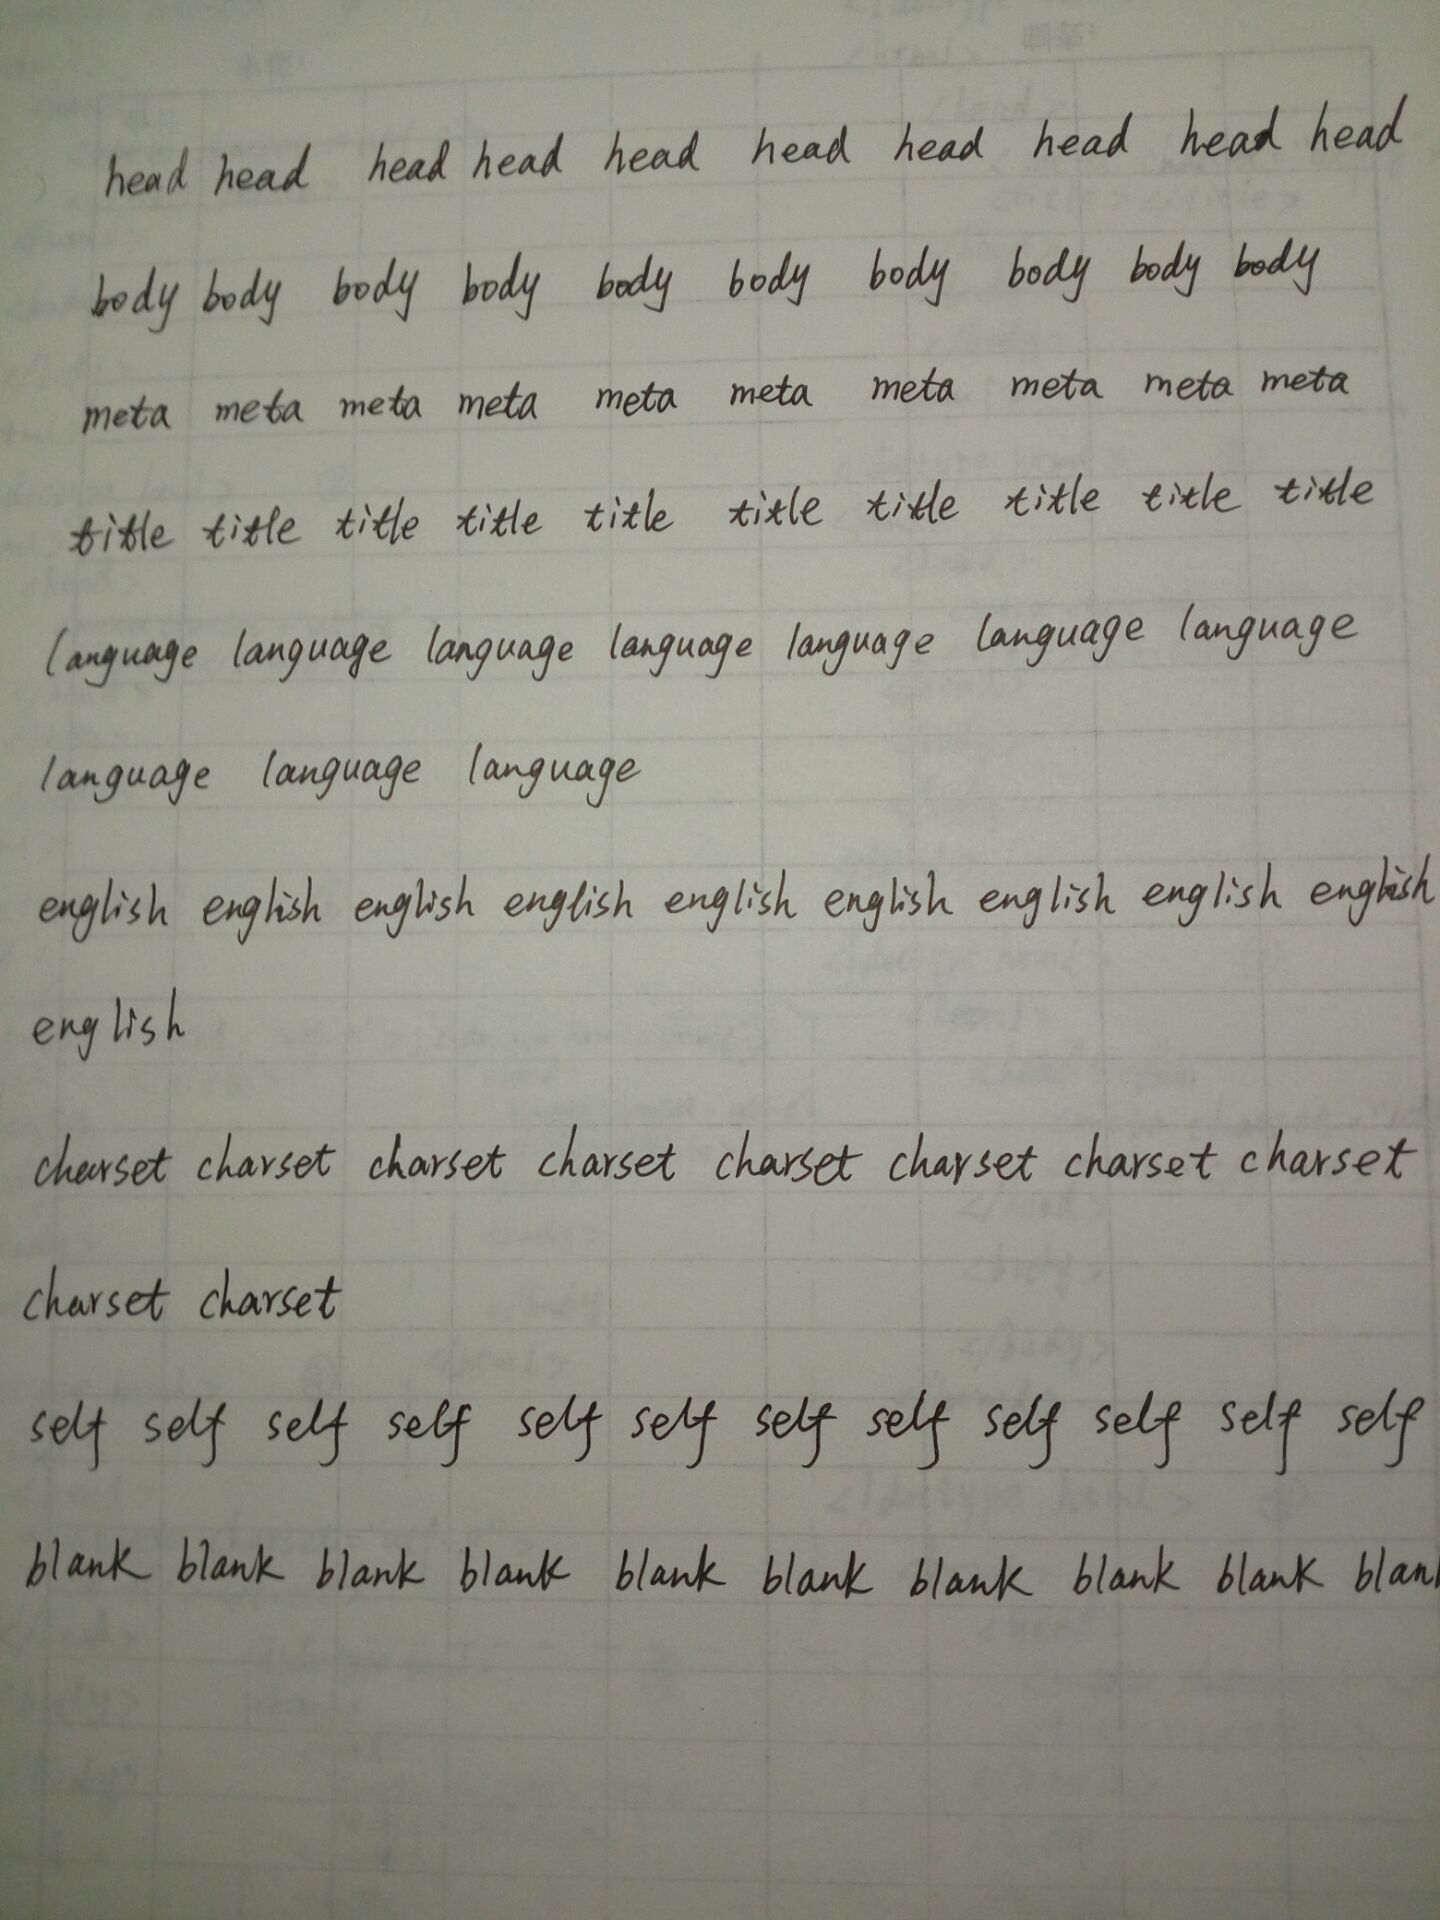 head head head head head head head head head head
body body body body body body body body body body
meta meta meta meta meta meta meta meta meta meta
title title title title title title title title title title
language language language language language language language
language language language
english english english english english english english english english
english
charset charset charset charset charset charset charset charset
charset charset
self self self self self self self self self self self self
blank blank blank blank blank blank blank blank blank blan